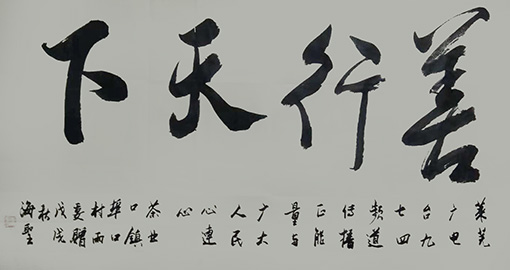 善行天下
莱芜
广电
台九
七四
频道
传播
正能
量与
广大
人民
心连
心
茶业
口镇
口
村两
委赠
戊戌
秋
海圣